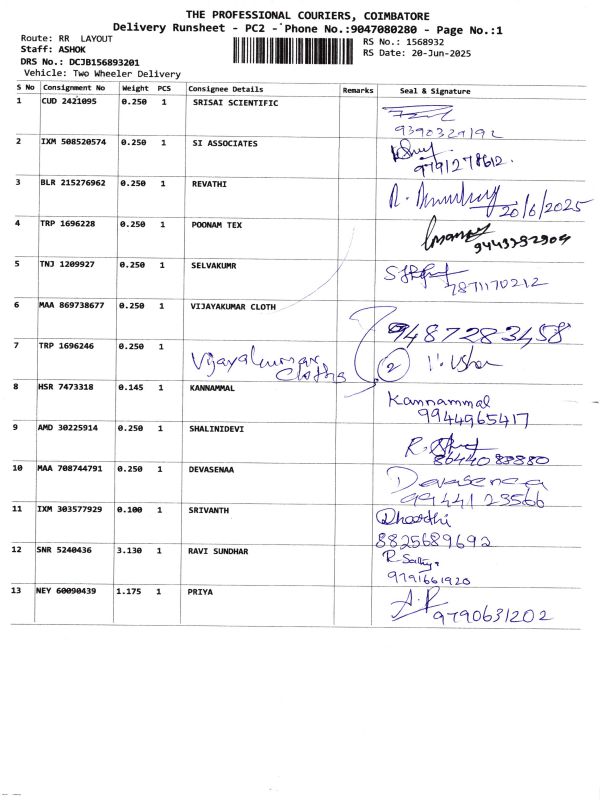 THE PROFESSIONAL COURIERS, COIMBATORE
Delivery Runsheet - PC2 - Phone No.:9047080280 - Page No.:1
Route: RR LAYOUT
RS No.: 1568932
Staff: ASHOK
RS Date: 20-Jun-2025
DRS No.: DCJB156893201
Vehicle: Two Wheeler Delivery
S No Consignment No Weight PCS Consignee Details Remarks Seal & Signature
1 CUD 2421095 0.250 1 SRISAI SCIENTIFIC
9390329192
2 IXM 508520574 0.250 1 SI ASSOCIATES
9791278612.
3 BLR 215276962 0.250 1 REVATHI
20/6/2025
4 TRP 1696228 0.250 1 POONAM TEX
5 TNJ 1209927 0.250 1 SELVAKUMR
7871170212
6 MAA 869738677 0.250 1 VIJAYAKUMAR CLOTH
9487283458
7 TRP 1696246 0.250 1 Vijayakumar
Cloths 2
8 HSR 7473318 0.145 1 KANNAMMAL Kannammal
9944965417
9 AMD 30225914 0.250 1 SHALINIDEVI
10 MAA 708744791 0.250 1 DEVASENAA Devasenaa
9944123566
11 IXM 303577929 0.100 1 SRIVANTH
8825689692
12 SNR 5240436 3.130 1 RAVI SUNDHAR
9791661920
13 NEY 60090439 1.175 1 PRIYA
9790631202